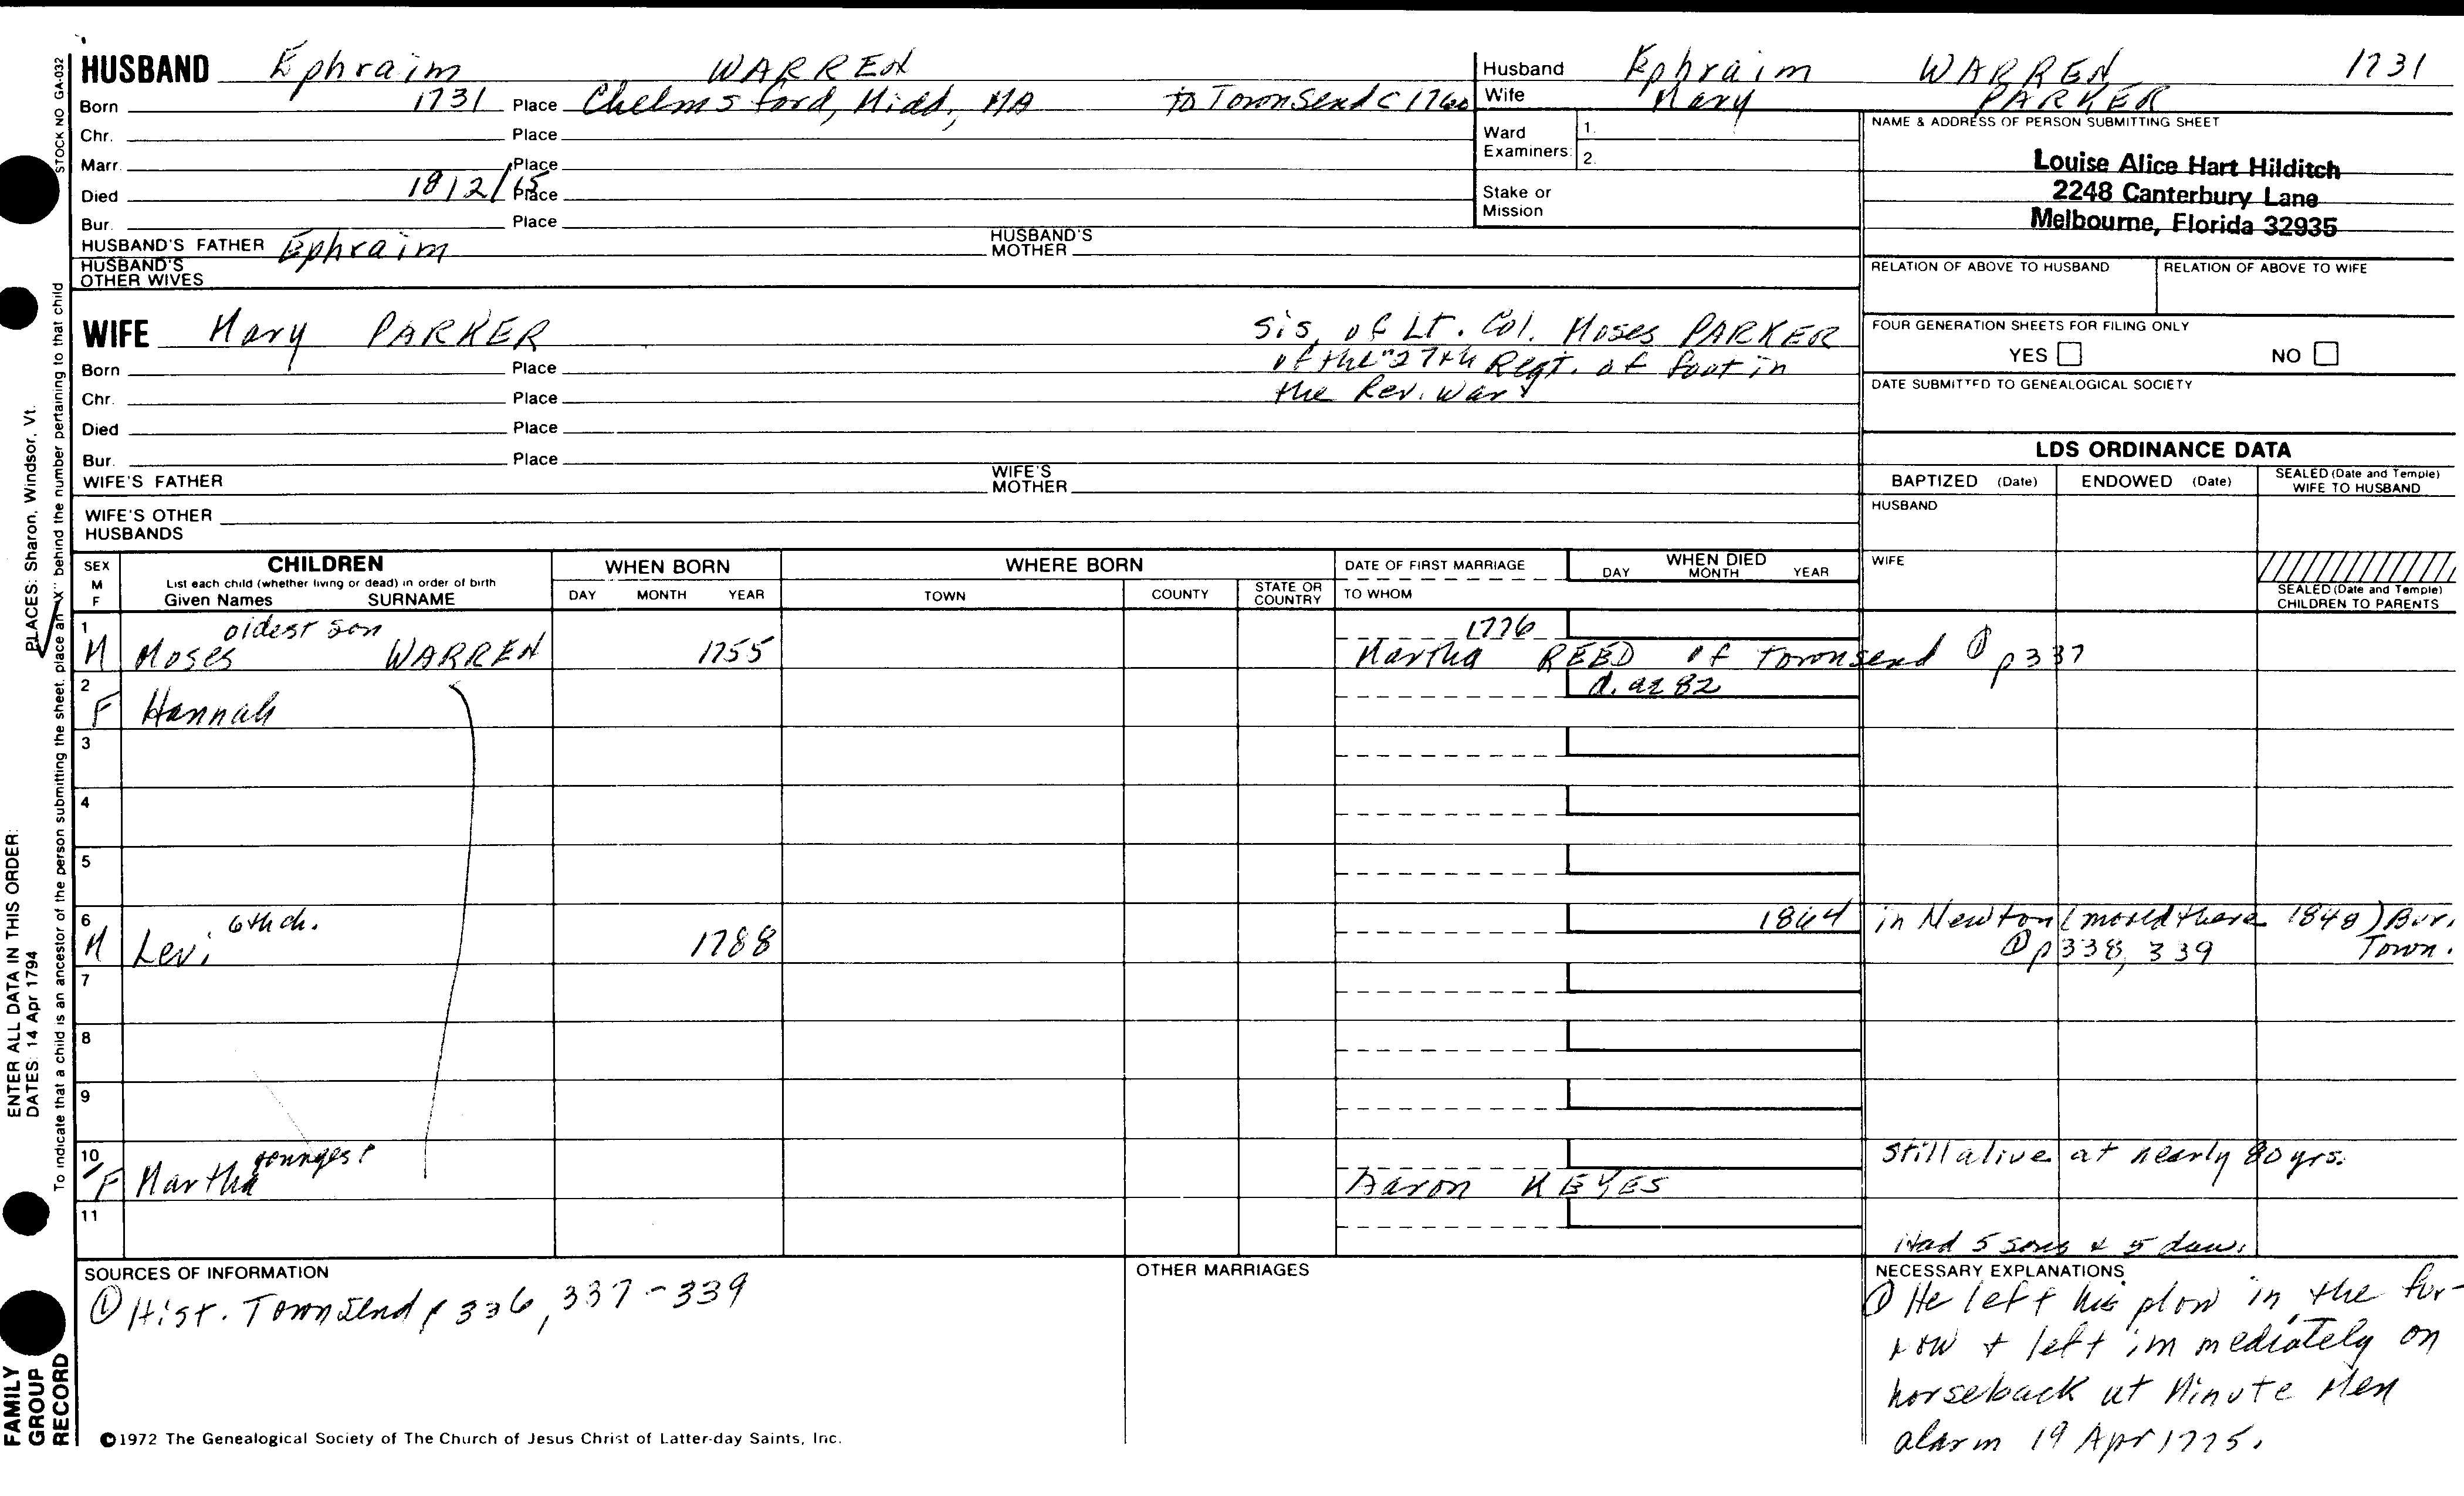 HUSBAND Ephraim WARREN
Born 1731 Place Chelmsford, Midd, MA to Townsend c 1760
Chr. Place
Marr. Place
Died 1812/15 Place
Bur. Place
HUSBAND'S FATHER Ephraim HUSBAND'S MOTHER
HUSBAND'S OTHER WIVES
Husband Ephraim WARREN 1731
Wife Mary PARKER
Ward Examiners: 1. 2.
Stake or Mission
NAME & ADDRESS OF PERSON SUBMITTING SHEET
Louise Alice Hart Hilditch
2248 Canterbury Lane
Melbourne, Florida 32935
RELATION OF ABOVE TO HUSBAND RELATION OF ABOVE TO WIFE
FOUR GENERATION SHEETS FOR FILING ONLY
YES NO
DATE SUBMITTED TO GENEALOGICAL SOCIETY
WIFE Mary PARKER sis, of Lt. Col. Moses PARKER
of the "27th Regt. of foot in
the Rev. War"
Born Place
Chr. Place
Died Place
Bur. Place
WIFE'S FATHER WIFE'S MOTHER
WIFE'S OTHER HUSBANDS
LDS ORDINANCE DATA
BAPTIZED (Date) ENDOWED (Date) SEALED (Date and Temple) WIFE TO HUSBAND
HUSBAND
WIFE
SEALED (Date and Temple) CHILDREN TO PARENTS
SEX M F
CHILDREN
List each child (whether living or dead) in order of birth
Given Names SURNAME
WHEN BORN
DAY MONTH YEAR
WHERE BORN
TOWN COUNTY STATE OR COUNTRY
DATE OF FIRST MARRIAGE
TO WHOM
WHEN DIED
DAY MONTH YEAR
1 oldest son 1776
M Moses WARREN 1755 Martha REED of Townsend ① p337
2 d. ae 82
F Hannah
3
4
5
6 6th ch. 1864 in Newton (moved there 1848) Bur.
M Levi 1788 ① p338, 339 Town.
7
8
9
10 youngest still alive at nearly 80 yrs.
F Martha Aaron KEYES
11
Had 5 sons & 5 daus.
SOURCES OF INFORMATION
① Hist. Townsend p 336, 337-339
OTHER MARRIAGES
NECESSARY EXPLANATIONS
① He left his plow in the fur-
row & left immediately on
horseback at Minute Men
alarm 19 Apr 1775.
©1972 The Genealogical Society of The Church of Jesus Christ of Latter-day Saints, Inc.
FAMILY
GROUP
RECORD
ENTER ALL DATA IN THIS ORDER:
DATES: 14 Apr 1794 PLACES: Sharon, Windsor, Vt.
To indicate that a child is an ancestor of the person submitting the sheet, place an "X" behind the number pertaining to that child
STOCK NO GA-032